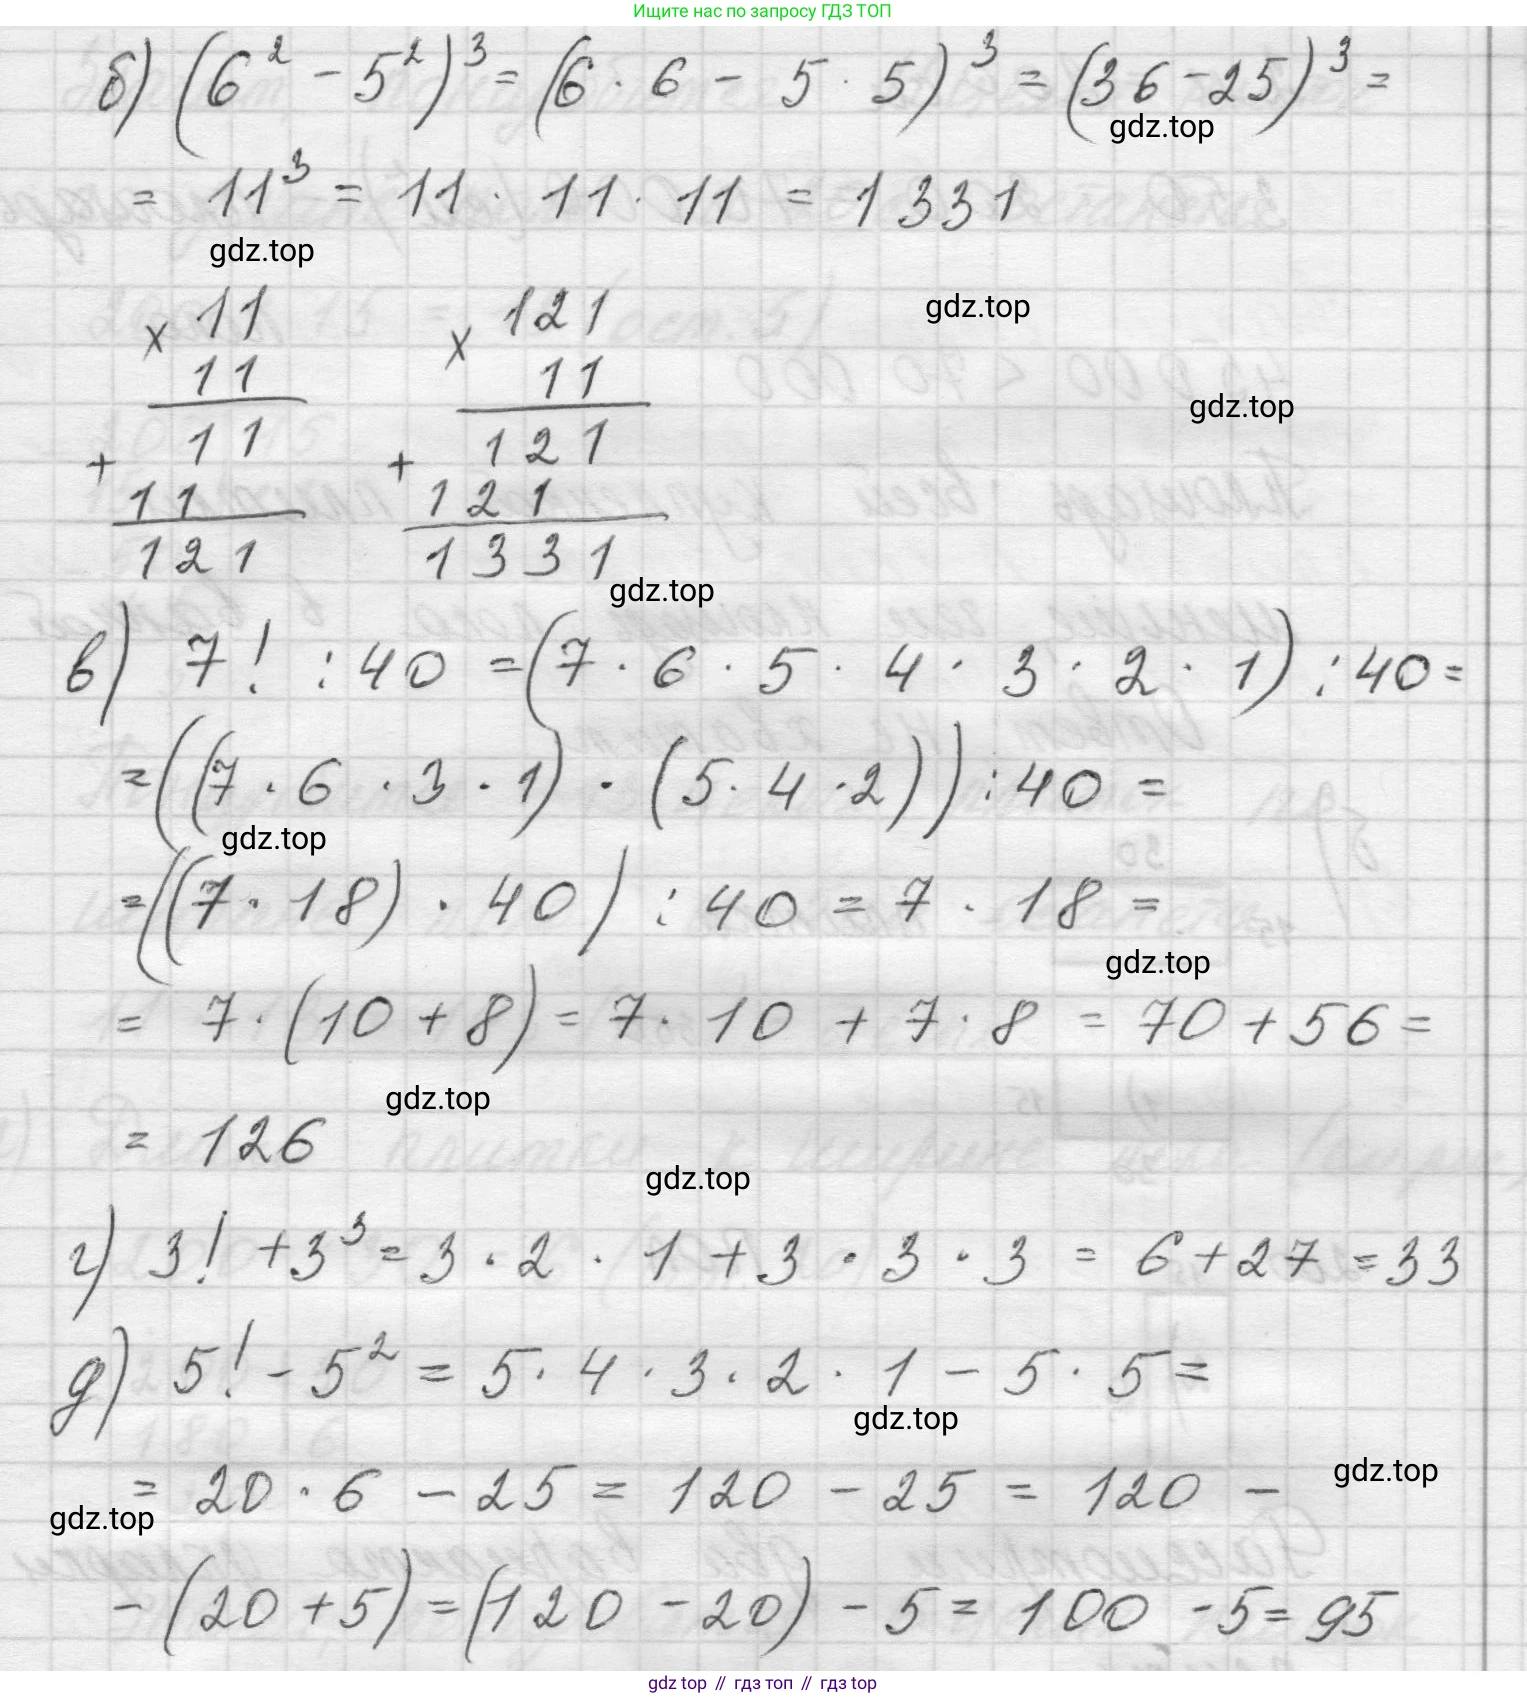 Ищите нас по запросу ГДЗ ТОП
б) (6² - 5²)³ = (6 · 6 - 5 · 5)³ = (36 - 25)³ =
gdz.top
= 11³ = 11 · 11 · 11 = 1331
gdz.top
gdz.top
× 11 × 121
11 11
gdz.top
+ 11 + 121
11 121
121 1331
gdz.top
в) 7! : 40 = (7 · 6 · 5 · 4 · 3 · 2 · 1) : 40 =
= ((7 · 6 · 3 · 1) · (5 · 4 · 2)) : 40 =
gdz.top
= ((7 · 18) · 40) : 40 = 7 · 18 =
gdz.top
= 7 · (10 + 8) = 7 · 10 + 7 · 8 = 70 + 56 =
gdz.top
= 126
gdz.top
г) 3! + 3³ = 3 · 2 · 1 + 3 · 3 · 3 = 6 + 27 = 33
д) 5! - 5² = 5 · 4 · 3 · 2 · 1 - 5 · 5 =
gdz.top
gdz.top
= 20 · 6 - 25 = 120 - 25 = 120 -
gdz.top
- (20 + 5) = (120 - 20) - 5 = 100 - 5 = 95
gdz top // гдз топ // gdz top